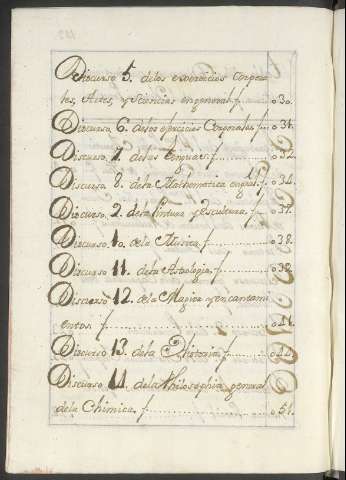 Discurso 5. de los exercicios corpora
les, Artes, y Sciencias en general f. 030.
Discurso 6. de los exercicios Corporales f. 031.
Discurso 7. de las Lenguas f. 032.
Discurso 8. de la Mathematica en gral. f. 034.
Discurso 9. de la Pintura y Escultura f. 037.
Discurso 10. de la Musica f. 038.
Discurso 11. de la Astrologia f. 039.
Discurso 12. de la Magica y encantami
entos f. 041.
Discurso 13. de la Historia f. 042.
Discurso 14. de la Philosophia y general
de la Chimica f. 051.